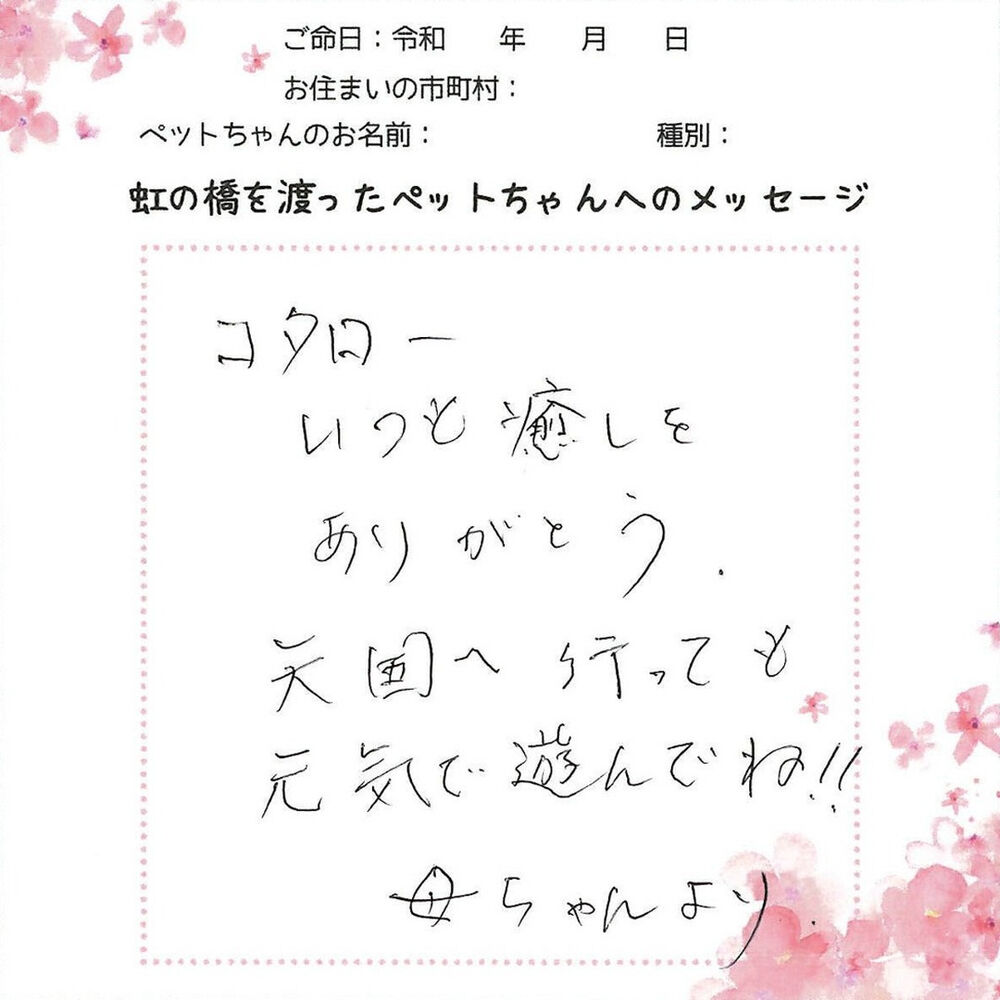 ご命日：令和　　年　　月　　日
お住まいの市町村：
ペットちゃんのお名前：　　　　　　　　種別：
虹の橋を渡ったペットちゃんへのメッセージ
コタロー
いつも癒しを
ありがとう.
天国へ行っても
元気で遊んでね!!
母ちゃんより.